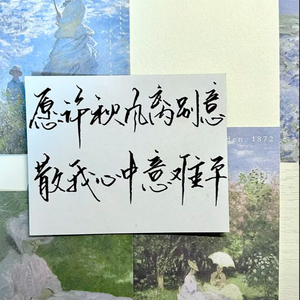 愿许秋风离别意
散我心中意难平
den, 1872